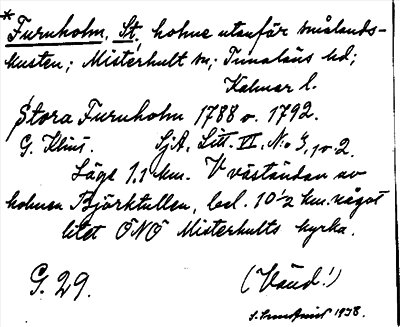 * Furuholm, St., holme utanför smålands-
kusten; Misterhult sn; Tunaläns hd;
Kalmar l.
Stora Furuholm 1788 o. 1792.
G. Klint. SjA. Litt. VI, N:o 3, 1 o. 2.
Läge 1.1 km. V väständan av
holmen Björktullen, bel. 10 1/2 km. något
litet ÖNÖ Misterhults kyrka.
G. 29. (Vänd!)
1938.